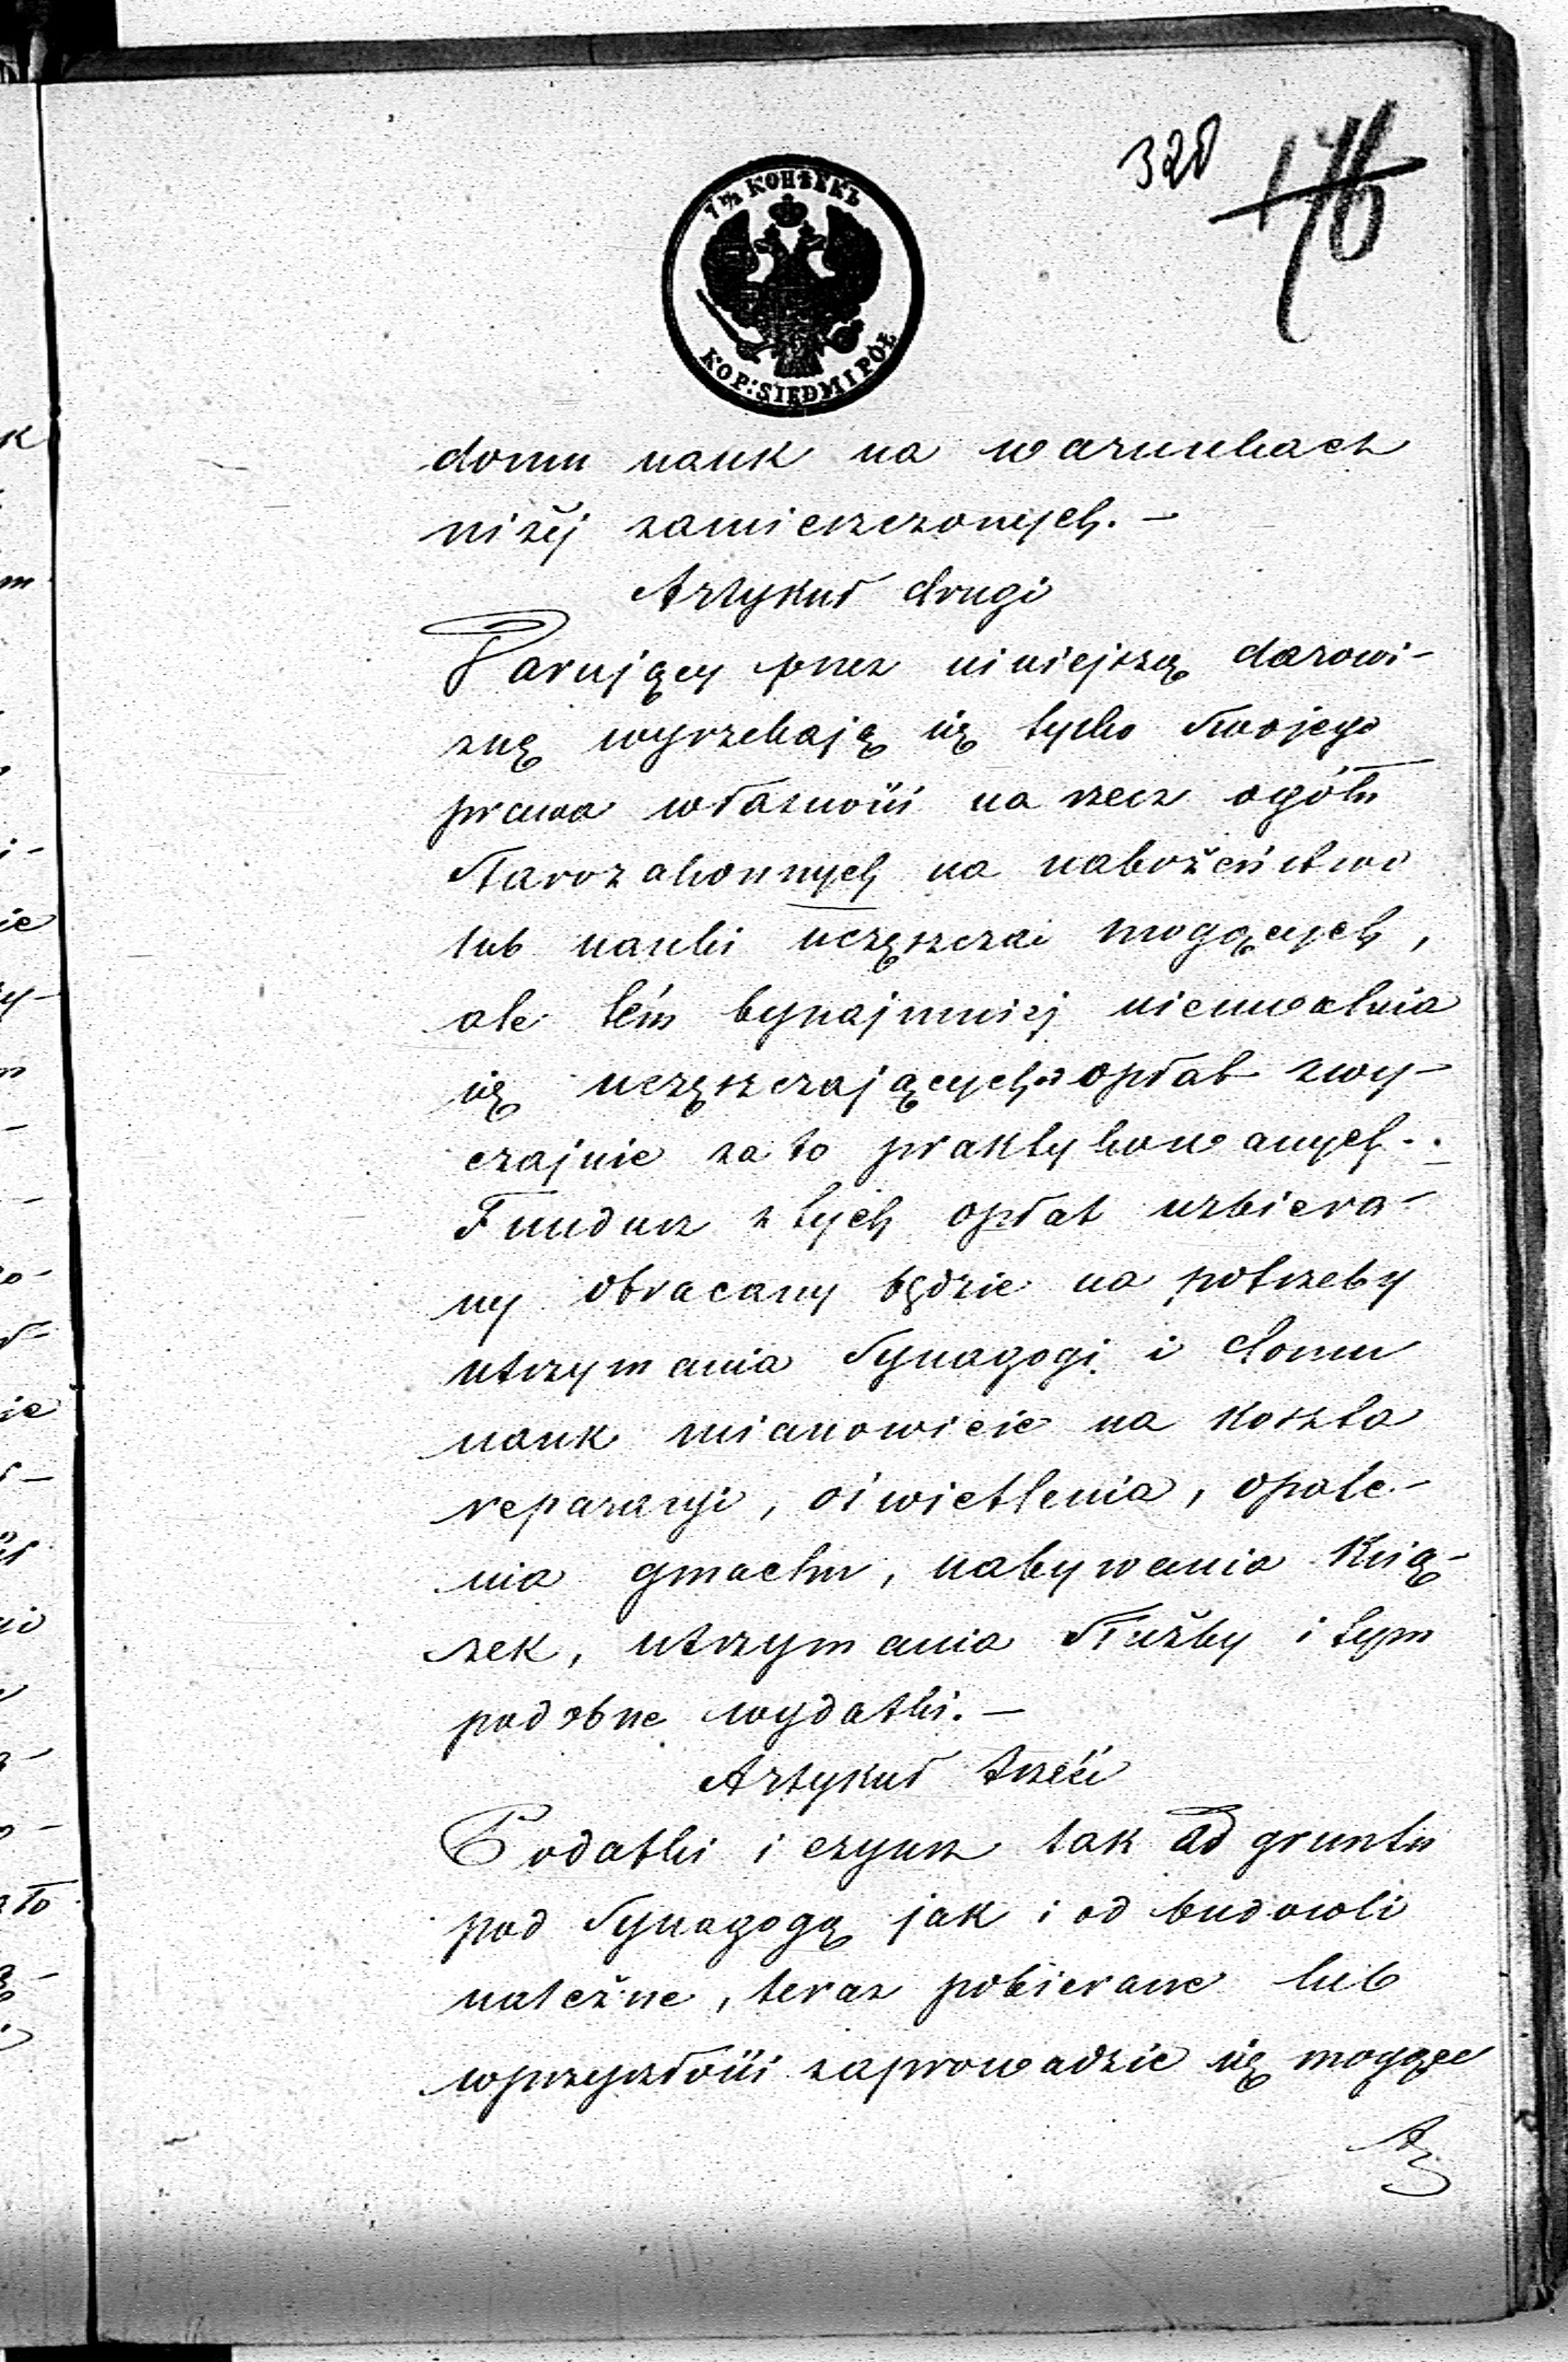 328 176
7½ КОПѢЕКЪ
KOP: SIEDM I PÓŁ
domu nauk na warunkach
niżéj zamieszczonych. —
Artykuł drugi
Darujący przez niniejszą darowi-
znę wyrzekają się tylko swojego
prawa własności na rzecz ogółu
Starozakonnych na nabożeństwo
lub nauki uczęszczać mogących,
ale tém bynajmniéj nieuwalnia
się uczęszczających od opłat zwy-
czajnie za to praktykowanych. -
Fundusz z tych opłat uzbiera-
ny obracany będzie na potrzeby
utrzymania Synagogi i domu
nauk mianowicie na koszta
reparacyi, oświetlenia, opale-
nia gmachu, nabywania Ksią-
żek, utrzymania Służby i tym
podobne wydatki. —
Artykuł trzeci
Podatki i czynsz tak od gruntu
pod Synagogą jak i od budowli
należne, teraz pobierane lub
wprzyszłości zaprowadzić się mogące